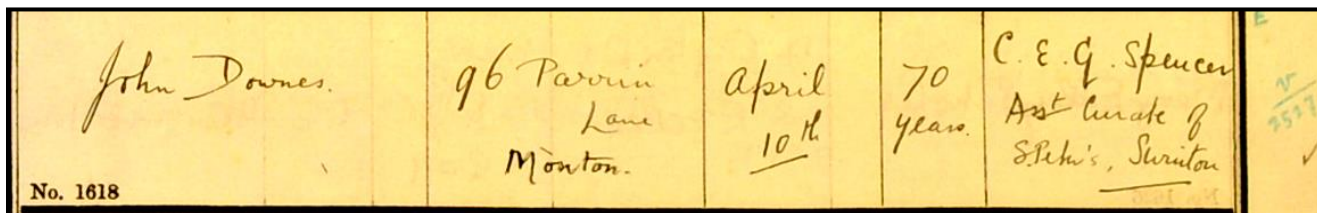 John Downes.
96 Parrin
Lane
Monton.
April
10th
70
years.
C. E. G. Spencer
Asst Curate of
S. Peter's, Swinton
No. 1618
E
v
2527